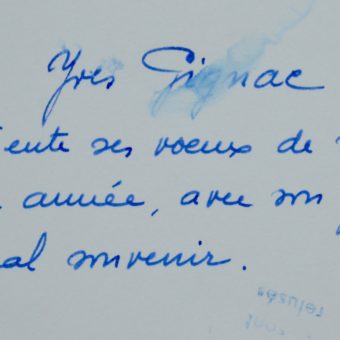 Yves Gignac
ente ses voeux de
année, avec son
al souvenir.